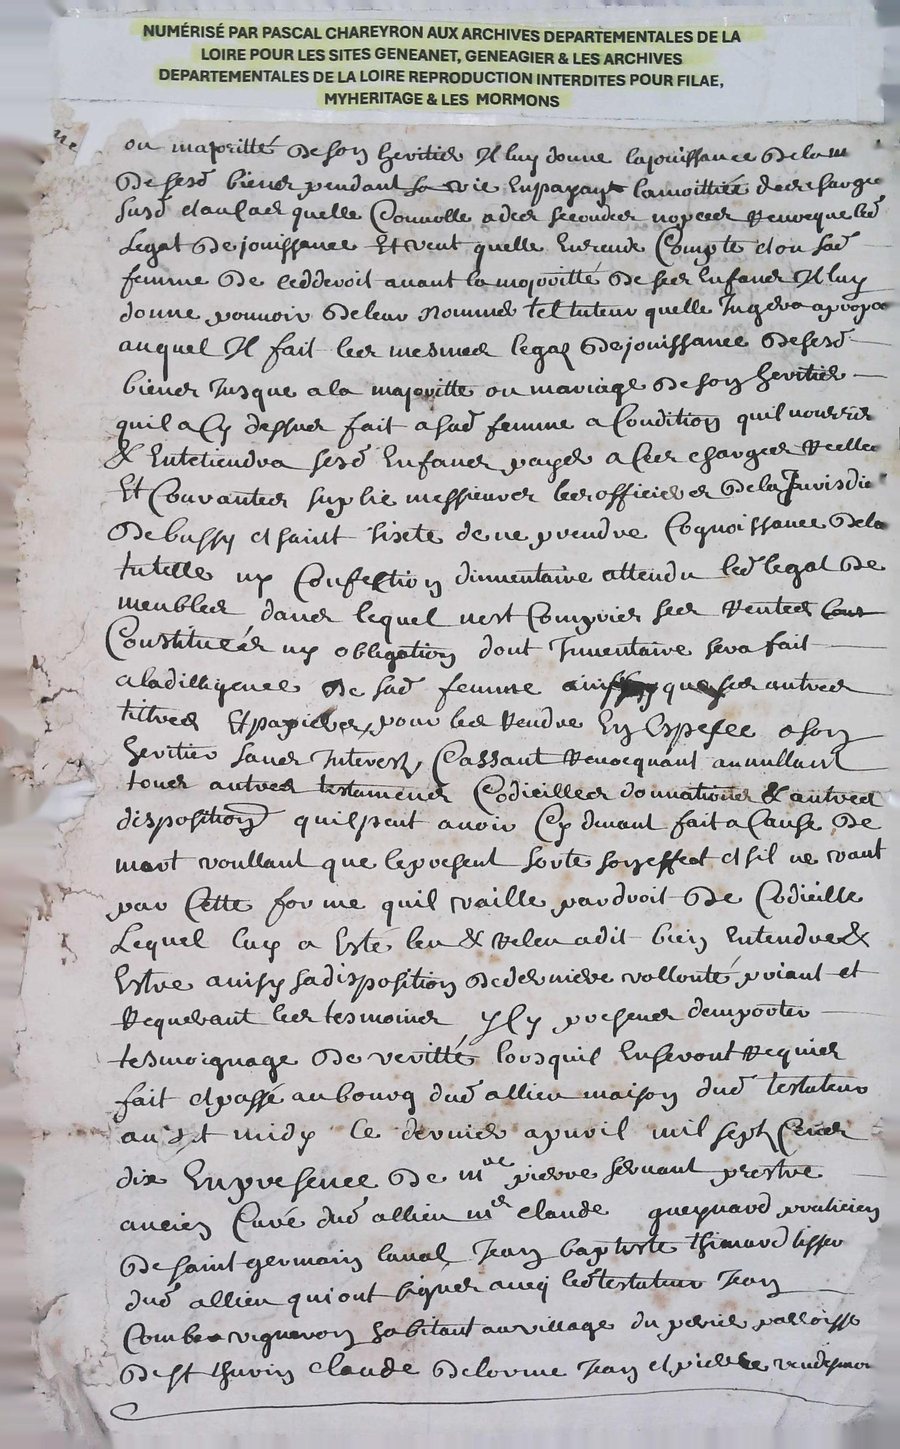 NUMÉRISÉ PAR PASCAL CHAREYRON AUX ARCHIVES DEPARTEMENTALES DE LA
LOIRE POUR LES SITES GENEANET, GENEAGIER & LES ARCHIVES
DEPARTEMENTALES DE LA LOIRE REPRODUCTION INTERDITES POUR FILAE,
MYHERITAGE & LES MORMONS
ou majoritté de son heritier Il luy donne la jouissance de la m
de sesd biens pendant sa vie En payant la moittiée des charges
susd et au cas quelle Convolle a des secondes nopces Revoque led
Legat de jouissance Et veut quelle En rende Compte et ou sad
femme de cedderoit avant la majoritté de ses Enfans Il luy
donne pouvoir de leur Nommer tel tuteur quelle Jugera apropos
auquel Il fait les mesmes legaz de jouissance de sesd
biens Jusque a la majoritte ou mariage de son heritier
quil a Cy dessus fait a sad femme a Condition quil nourrir
& Entetiendra sesd Enfans payer a les charges Reelles
Et Courantes suplie messieurs les officiers de la Jurisdic
de bussy et saint sixte de ne prendre Cognoissance de la
tutelle ny Confection dinventaire attendu led legat de
meubles dans lequel nest Compris ses Rentes
Constituées ny obligation dont Inventaire sera fait
a la dilligence de sad femme que ses autres
tittres Et papiers pour les Rendre En Espesee a son
heritier sans Interest, Cassant Revocquant annullant
tous autres testamens Codicilles donnations & autres
dispositions quil peut avoir Cy devant fait a Cause de
mort voullant que le present sorte son effect et sil ne vaut
par Cette forme quil vaille par droit de Codicille
Lequel luy a Esté leu & Releu a dit bien Entendre &
Estre ainsy sa disposition de derniere vollonté priant et
Requerant les tesmoins Ycy presens demporter
tesmoignage de veritté lorsquil En seront Requier
fait et passé au bourg dud allieu maison dud testateur
midy le dernier apvril mil sept Cens
dix En presence de mre pierre servant prestre
ancien Curé dud allieu mr claude gueynard praticien
de saint germain laval Jean baptiste
dud allieu qui ont signer avec led testateur Jean
Combre vigneron habitant au village du parroisse
de st thurin claude delorme Jean et pierre